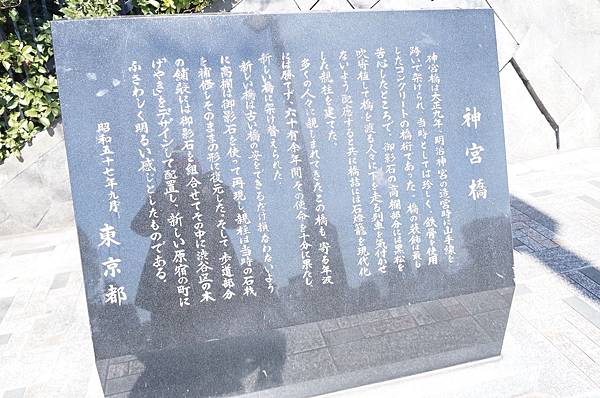 神宮橋
神宮橋は大正九年、明治神宮の造営時に山手線を
跨いで架けられ、当時としては珍しく、鉄骨を使用
したコンクリートの橋桁であった。橋の装飾は最も
苦心したところで、御影石の高欄部分には黒松を
吹寄植して橋を渡る人々に下を走る列車を気付かせ
ないよう配慮すると共に橋詰には石燈籠を現代化
した親柱を建てた。
多くの人々に親しまれてきたこの橋も、寄る年波
には勝てず、六十有余年間その使命を十分に果たし、
新しい橋に架け替えられた。
新しい橋は古い橋の姿をできるだけ損なわないよう
に高欄は御影石を使って再現し、親柱は当時の石材
を補修しそのままの形に復元した。そして、歩道部分
の舗装には御影石を組合せてその中に渋谷区の木
けやきをデザインして配置し、新しい原宿の町に
ふさわしく明るい感じとしたものである。
昭和五十七年九月 東京都